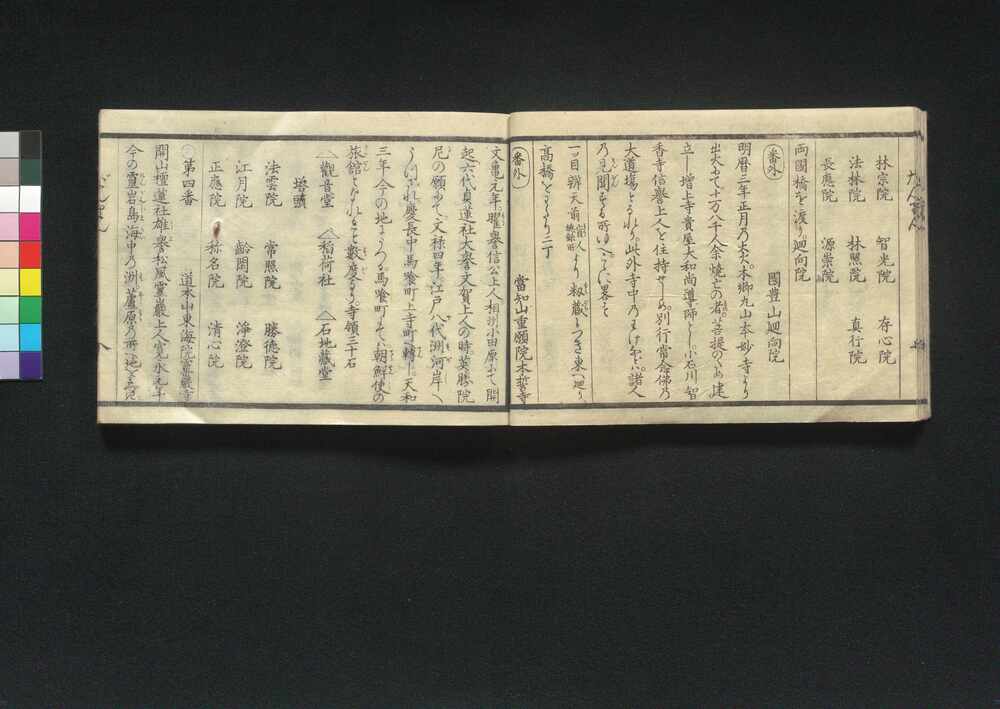 林宗院 智光院 存心院
法林院 林照院 真行院
長應院 源崇院
両國橋を渡り廻向院
番外 國豊山廻向院
明暦三年正月乃大火本郷丸山本妙寺より
出火して十万八千人余焼亡の者菩提のため建
立し増上寺貴屋大和尚導師とし小石川智
香寺信誉上人を住持せしめ別行常念佛乃
大道場となれり此外寺中乃
乃見聞する所ゆへに畧を
一ツ目辨天前 より 籾蔵につき東へ廻り
高橋をわたり二丁
番外 當知山重願院本誓寺
文亀元年曜譽信公上人相州小田原にて開
起六代貞蓮社大誉文賀上人の時英勝院
尼の願にて文禄四年江戸八代洲河岸へ
うつされ慶長中馬喰町上寺町へ轉し天和
三年今の地にうつる馬喰町にては朝鮮使の
旅館となれること数度なり寺領三十石
△觀音堂 △稲荷社 △石地蔵堂
塔頭
法雲院 常照院 勝徳院
江月院 齢閑院 淨澄院
正應院 称名院 清心院
第四番 道本山東海院霊巖寺
開山檀蓮社雄誉松風霊巖上人寛永元年
今の霊岩島海中乃洲蘆原乃所の地を